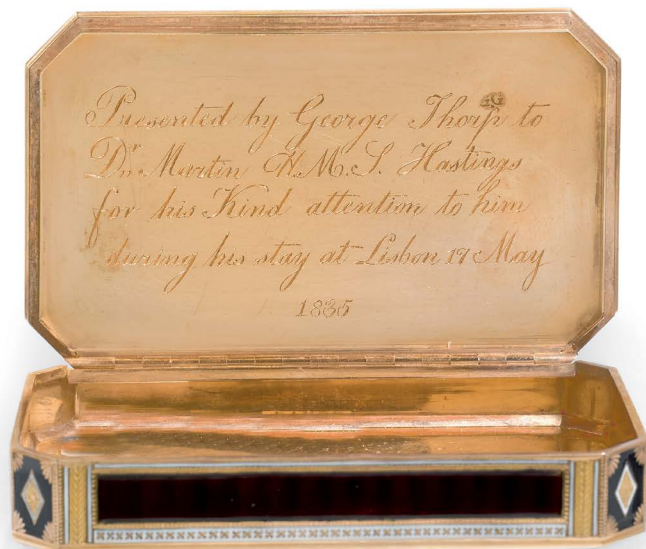 Presented by George Thorp to
Dr. Martin H.M.S. Hastings
for his Kind attention to him
during his stay at Lisbon 19 May
1835